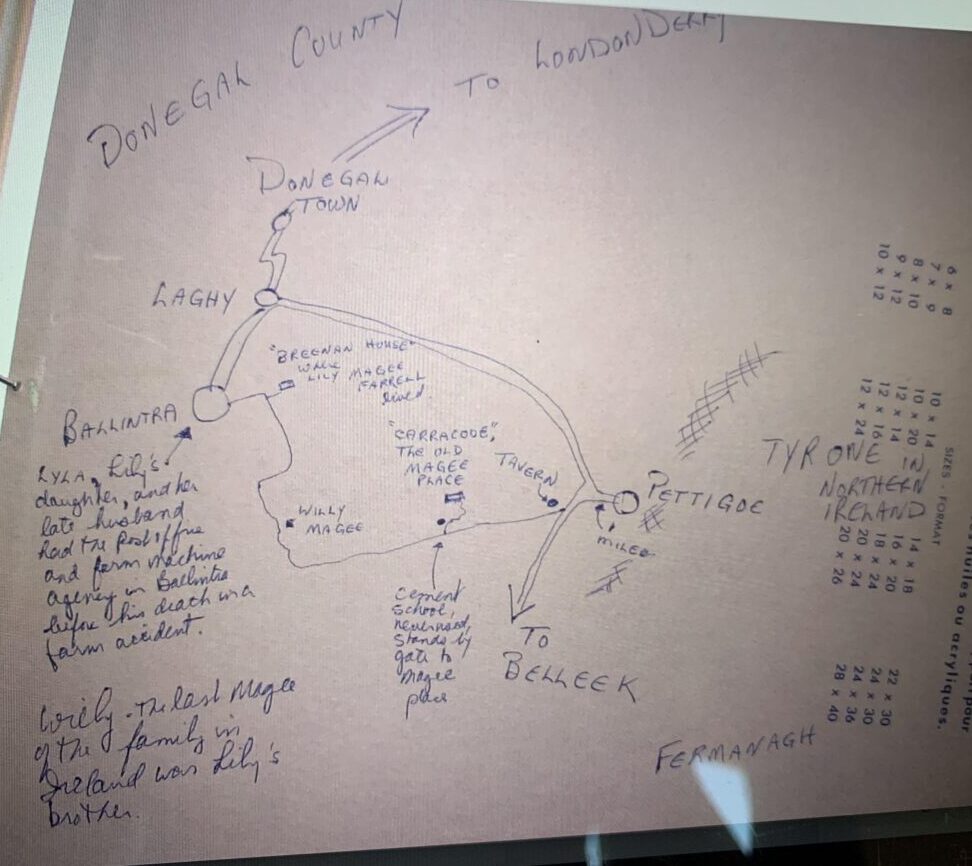 DONEGAL COUNTY
TO LONDONDERRY
DONEGAL
TOWN
LAGHY
"BREENAN HOUSE"
WHERE
LILY MAGEE
FARRELL
lived.
BALLINTRA
LYLA, Lily's
daughter, and her
late husband
had the Post office
and farm machine
agency in Ballintra
before his death in a
farm accident.
"CARRACODE",
THE OLD
MAGEE
PLACE
TAVERN
PETTIGOE
WILLY
MAGEE
MILES
Cement
School,
never used,
stands by
gate to
Magee
place
TO
BELLEEK
TYRONE IN
NORTHERN
IRELAND
FERMANAGH
Willy - the last Magee
of the family in
Ireland was Lily's
brother.
6 x 8
7 x 9
8 x 10
9 x 12
10 x 12
SIZES FORMAT
10 x 14
10 x 20
12 x 14
12 x 16
12 x 24
14 x 18
16 x 20
18 x 24
20 x 24
20 x 26
22 x 30
24 x 30
24 x 36
28 x 40
huiles ou acryliques.
pour